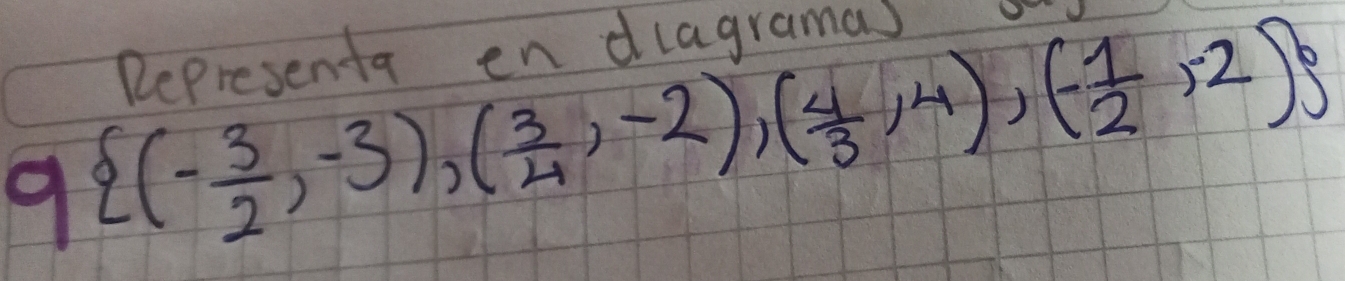 Representa en diagramas
9 {(-3/2, -3), (3/4, -2), (4/3, 4), (-1/2, -2)}